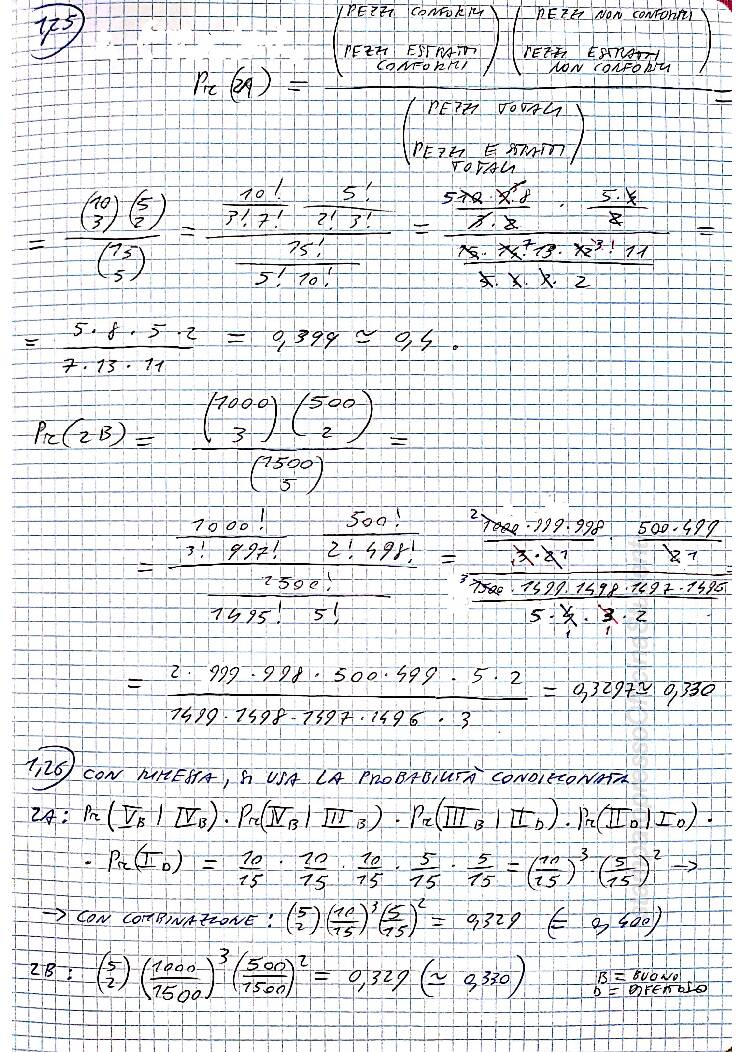 1,25
Pr(2A) = (PEZZI CONFORMI / PEZZI ESTRATTI CONFORMI) (PEZZI NON CONFORMI / PEZZI ESTRATTI NON CONFORMI) / (PEZZI TOTALI / PEZZI ESTRATTI TOTALI) =
= (10 3)(5 2) / (15 5) = (10!/(3! 7!) · 5!/(2! 3!)) / (15!/(5! 10!)) =
= (5 · 8 · 5 · 2) / (7 · 13 · 11) = 0,399 ≃ 0,4.
Pr(2B) = (1000 3)(500 2) / (1500 5) =
= (1000!/(3! 997!) · 500!/(2! 498!)) / (1500!/(1495! 5!)) = (1000 · 999 · 998 · 500 · 499) / (1500 · 1499 · 1498 · 1497 · 1496) =
= (2 · 999 · 998 · 500 · 499 · 5 · 2) / (1499 · 1498 · 1497 · 1496 · 3) = 0,3297 ≃ 0,330
1,26 CON RIMESSA, SI USA LA PROBABILITÀ CONDIZIONATA
2A: Pr(V_B | IV_B) · Pr(IV_B | III_B) · Pr(III_B | II_D) · Pr(II_D | I_D) ·
· Pr(I_D) = 10/15 · 10/15 · 10/15 · 5/15 · 5/15 = (10/15)^3 · (5/15)^2 →
→ CON COMBINAZIONE: (5 2) (10/15)^3 (5/15)^2 = 0,329 (= 0,400)
2B: (5 2) (1000/1500)^3 (500/1500)^2 = 0,329 (≃ 0,330)
B = BUONO
D = DIFETTOSO